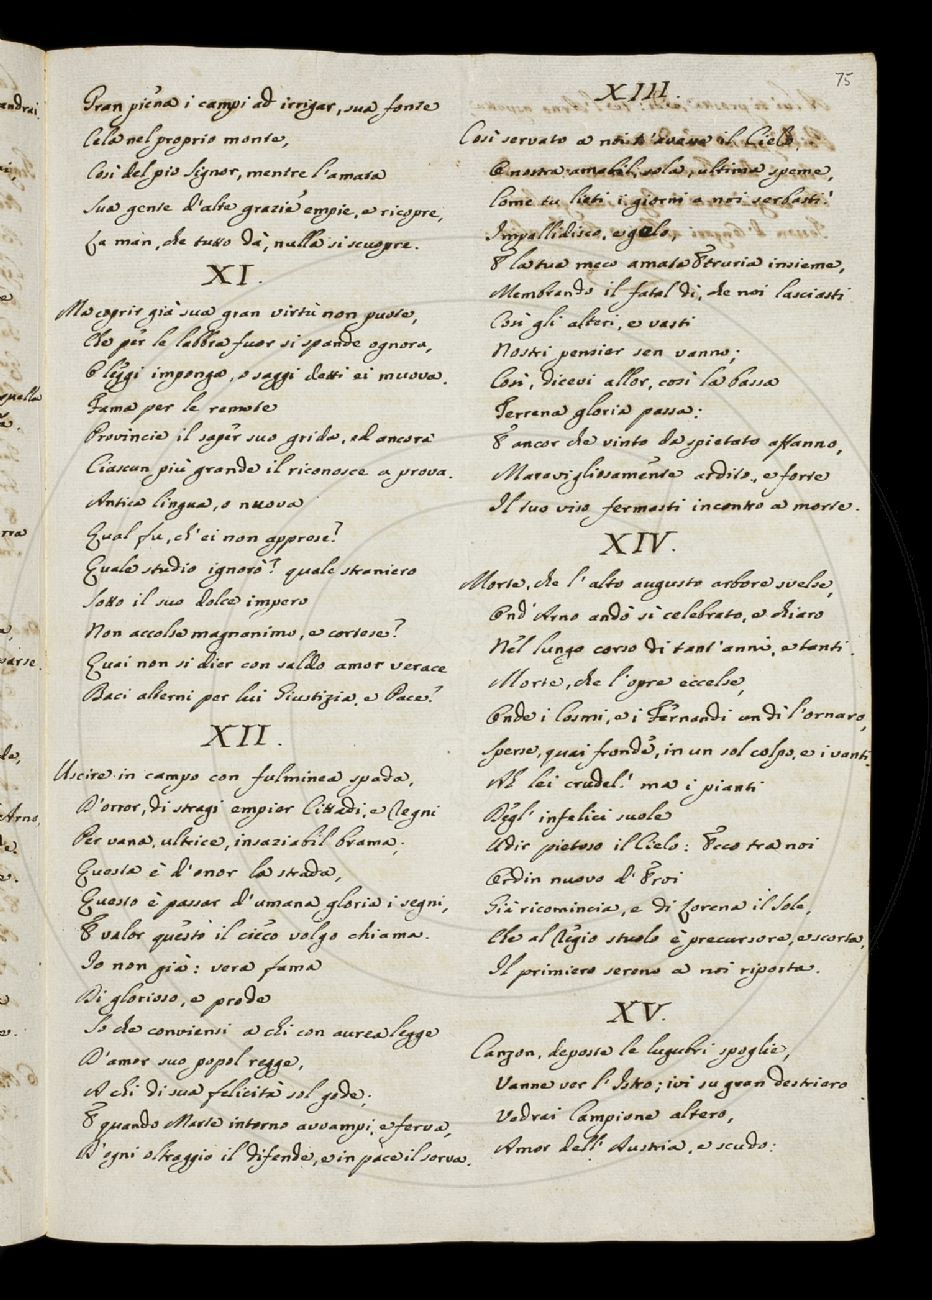 75
Gran piena i campi ad irrigar, sua fonte
Cela nel proprio monte,
Così del pio Signor, mentre l'amata
Sua gente d'alte grazie empie, e ricopre,
La man, che tutto dà, nulla si scuopre.
XI.
Ma coprir già sua gran virtù non puote,
Che per le labbra fuor si spande ognora,
O leggi imponga, o saggi detti ei muova.
Fama per le remote
Provincie il saper suo grida, ed ancora
Ciascun più grande il riconosce a prova.
Antica lingua, o nuova
Qual fu, ch'ei non apprese?
Quale studio ignorò? quale straniero
Sotto il suo dolce impero
Non accolse magnanimo, e cortese?
Quai non si dier con saldo amor verace
Baci alterni per lui Giustizia, e Pace?
XII.
Uscire in campo con fulminea spada,
D'orror, di stragi empier Cittadi, e Regni
Per vana, ultrice, insaziabil brama;
Questa è d'onor la strada,
Questo è passar d'umana gloria i segni,
E valor questo il cieco volgo chiama.
Io non già: vera fama
Di glorioso, e prode
So che conviensi a chi con aurea legge
D'amor suo popol regge,
A chi di sua felicità sol gode;
E quando Marte intorno avvampi, e ferva,
D'ogni oltraggio il difende, e in pace il serva.
XIII.
Così servato a noi t'avesse il Cielo
O nostra amabil, sola, ultima speme,
Come tu lieti i giorni a noi serbasti!
Impallidisco, e gelo,
E la tua meco amata Etruria insieme,
Membrando il fatal dì, che noi lasciasti
Così gli alteri, e vasti
Nostri pensier sen vanno;
Così, dicevi allor, così la bassa
Terrena gloria passa:
E ancor che vinto da spietato affanno,
Maravigliosamente ardito, e forte
Il tuo viso fermasti incontro a morte.
XIV.
Morte, che l'alto augusto arbore svelse,
Ond'Arno andò sì celebrato, e chiaro
Nel lungo corso di tant'anni, e tanti.
Morte, che l'opre eccelse,
Onde i Cosmi, e i Fernandi un dì l'ornaro,
Sperse, quai fronde, in un sol colpo, e i vanti
Ah lei crudel! ma i pianti
Degl'infelici suole
Udir pietoso il Cielo: Ecco tra noi
Ordin nuovo d'Eroi
Già ricomincia, e di Lorena il Sole,
Che al Regio stuolo è precursore, e scorta,
Il primiero sereno a noi riporta.
XV.
Canzon, deposte le lugubri spoglie,
Vanne ver l'Istro; ivi su gran destriero
Vedrai Campione altero,
Amor dell'Austria, e scudo: